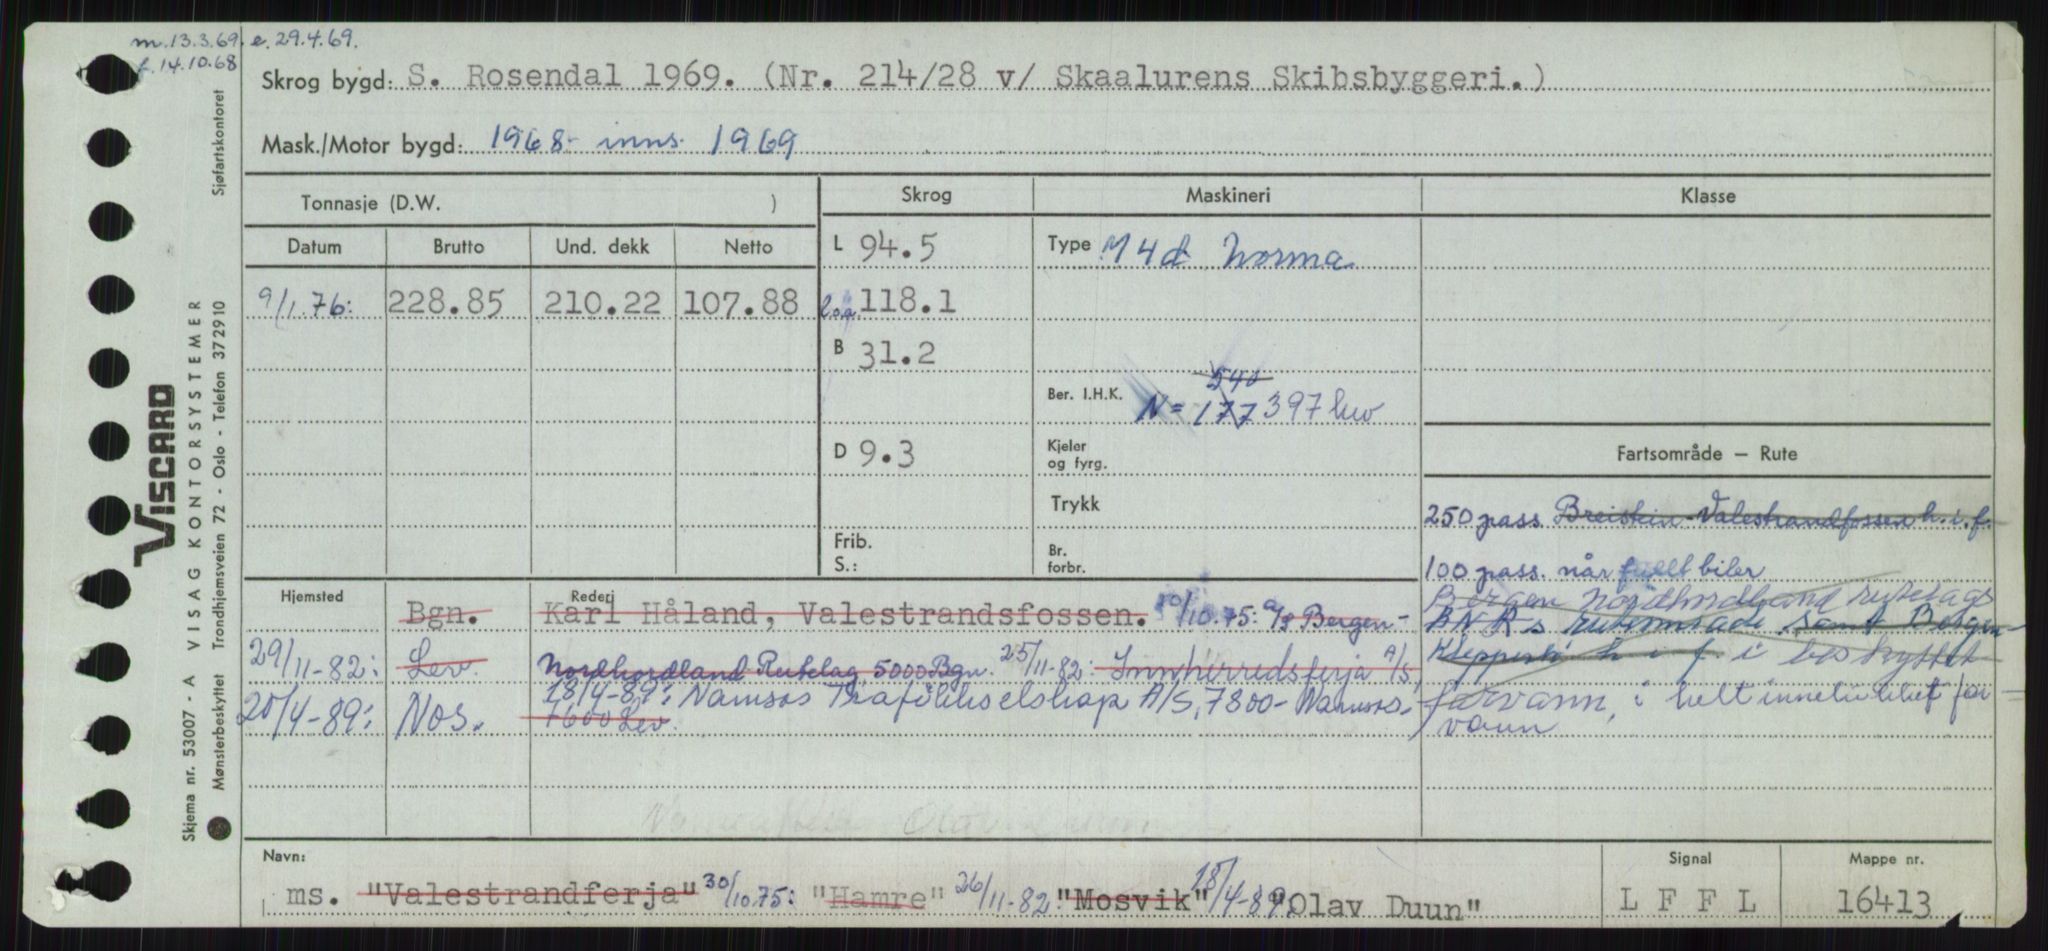 m. 13.3.69. e. 29.4.69.
f. 14.10.68
Skrog bygd: S. Rosendal 1969. (Nr. 214/28 v/ Skaalurens Skibsbyggeri.)
Mask./Motor bygd: 1968- inns. 1969
Tonnasje (D.W. )
Skrog
Maskineri
Klasse
Datum Brutto Und. dekk Netto
L 94.5
Type M 4 d Norma
9/1.76: 228.85 210.22 107.88
l.o.a. 118.1
B 31.2
540
Ber. I.H.K. N = 177 397
D 9.3
Kjeler
og fyrg.
Fartsområde — Rute
Trykk
250 pass. Breistein-Valestrandfossen h.i.f.
Frib.
S.:
Br.
forbr.
100 pass. når fullt biler
Hjemsted
Rederi
Bgn. Karl Håland, Valestrandsfossen. 30/10.75: A/S Bergen-
Bergen Nordhordland rutelags
BNR's ruteområde samt Bergen-
29/11-82: Lev. Nordhordland Rutelag, 5000 Bgn. 25/11-82: Innherredsferja A/S,
Kleppestø h i f. i beskyttet
18/4-89: Namsos Trafikkselskap A/S, 7800- Namsos.
farvann, i helt innelukket far-
20/4-89: Nos. 7600 Lev.
vann
Navn:
ms. "Valestrandferja" 30/10.75: "Hamre" 26/11-82 "Mosvik" 18/4-89: "Olav Duun"
Signal
L F F L
Mappe nr.
16413
VISCARD
Skjema nr. 53007 - A VISAG KONTORSYSTEMER
Mønsterbeskyttet Trondhjemsveien 72 - Oslo - Telefon 372910
Sjøfartskontoret